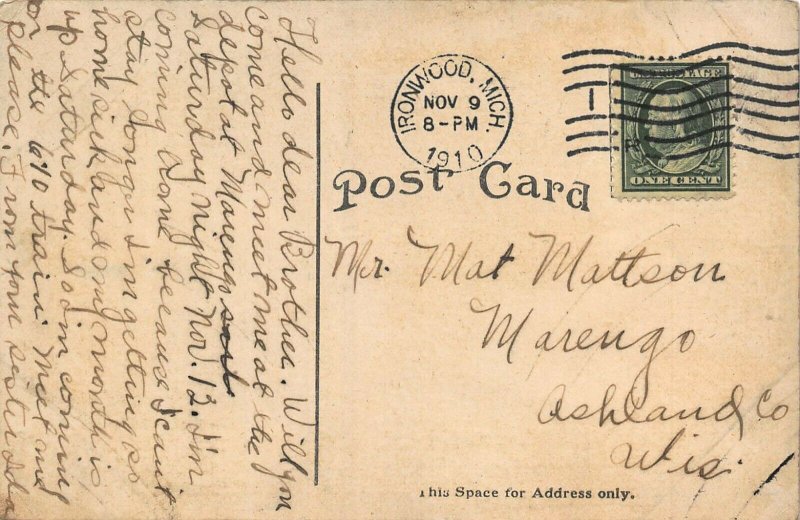 Hello dear Brother. Will you
come and meet me at the
depot at Marengo
Saturday night Nov. 12. I'm
coming home because I cant
stay longer I'm getting so
home sick and my month is
up Saturday. So im coming
on the 610 train. Meet me
please. From your sister Ida
IRONWOOD, MICH.
NOV 9
8-PM
1910
1
U.S. POSTAGE
ONE CENT
Post Card
Mr. Mat Mattson
Marengo
Ashland Co
Wis.
This Space for Address only.